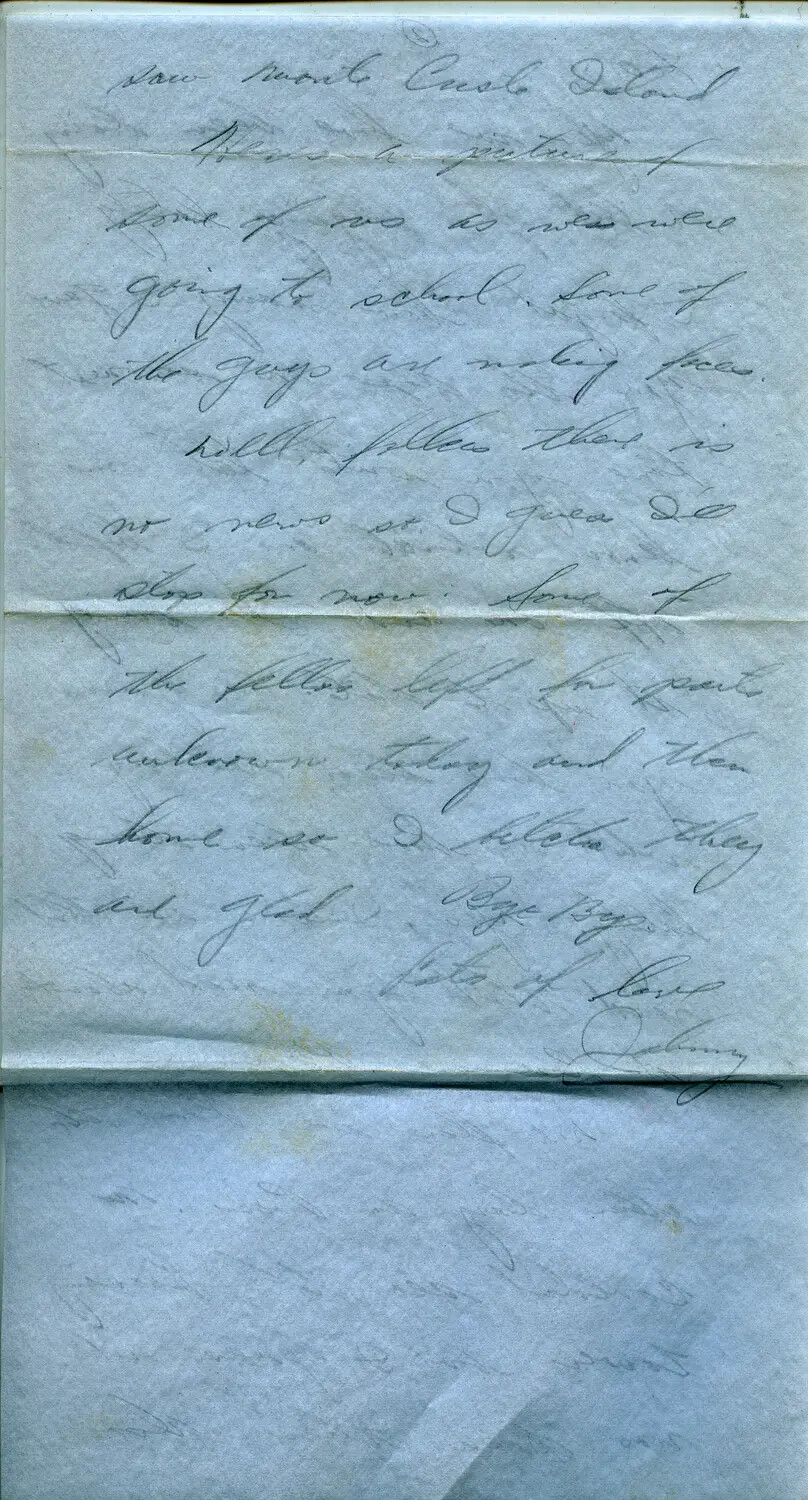 ②
saw Monte Cristo Island
Heres a picture of
some of us as we were
going to school. Some of
the guys are making faces.
Well, fellas there is
no news so I guess I'll
stop for now. Some of
the fellas left for parts
unknown today and then
home so I betcha they
are glad. Bye Bye.
Lots of love
Johnny